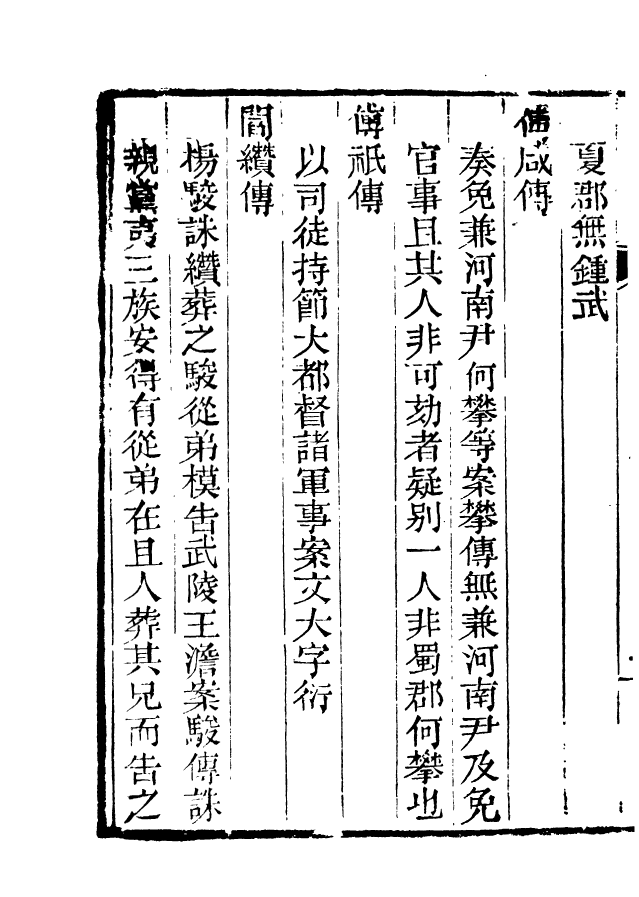 夏郡無鍾武
傅咸傳
奏免兼河南尹何攀等案攀傳無兼河南尹及免
官事且其人非可劾者疑別一人非蜀郡何攀也
傅祇傳
以司徒持節大都督諸軍事案文大字衍
閻纘傳
楊駿誅纘葬之駿從弟模告武陵王澹案駿傳誅
親黨夷三族安得有從弟在且人葬其兄而告之